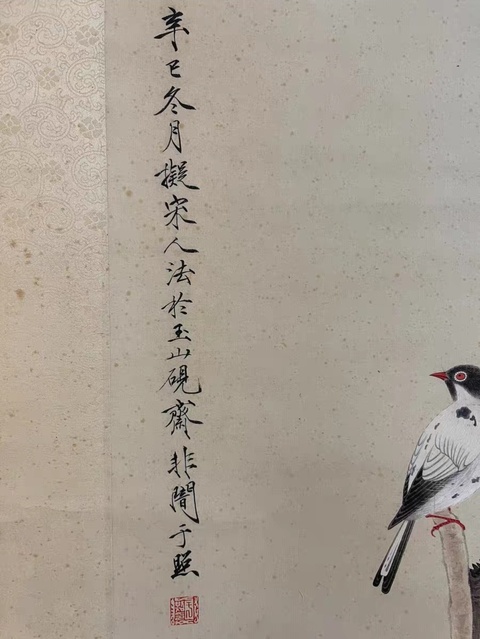 辛巳冬月擬宋人法於玉山硯齋非闇于照